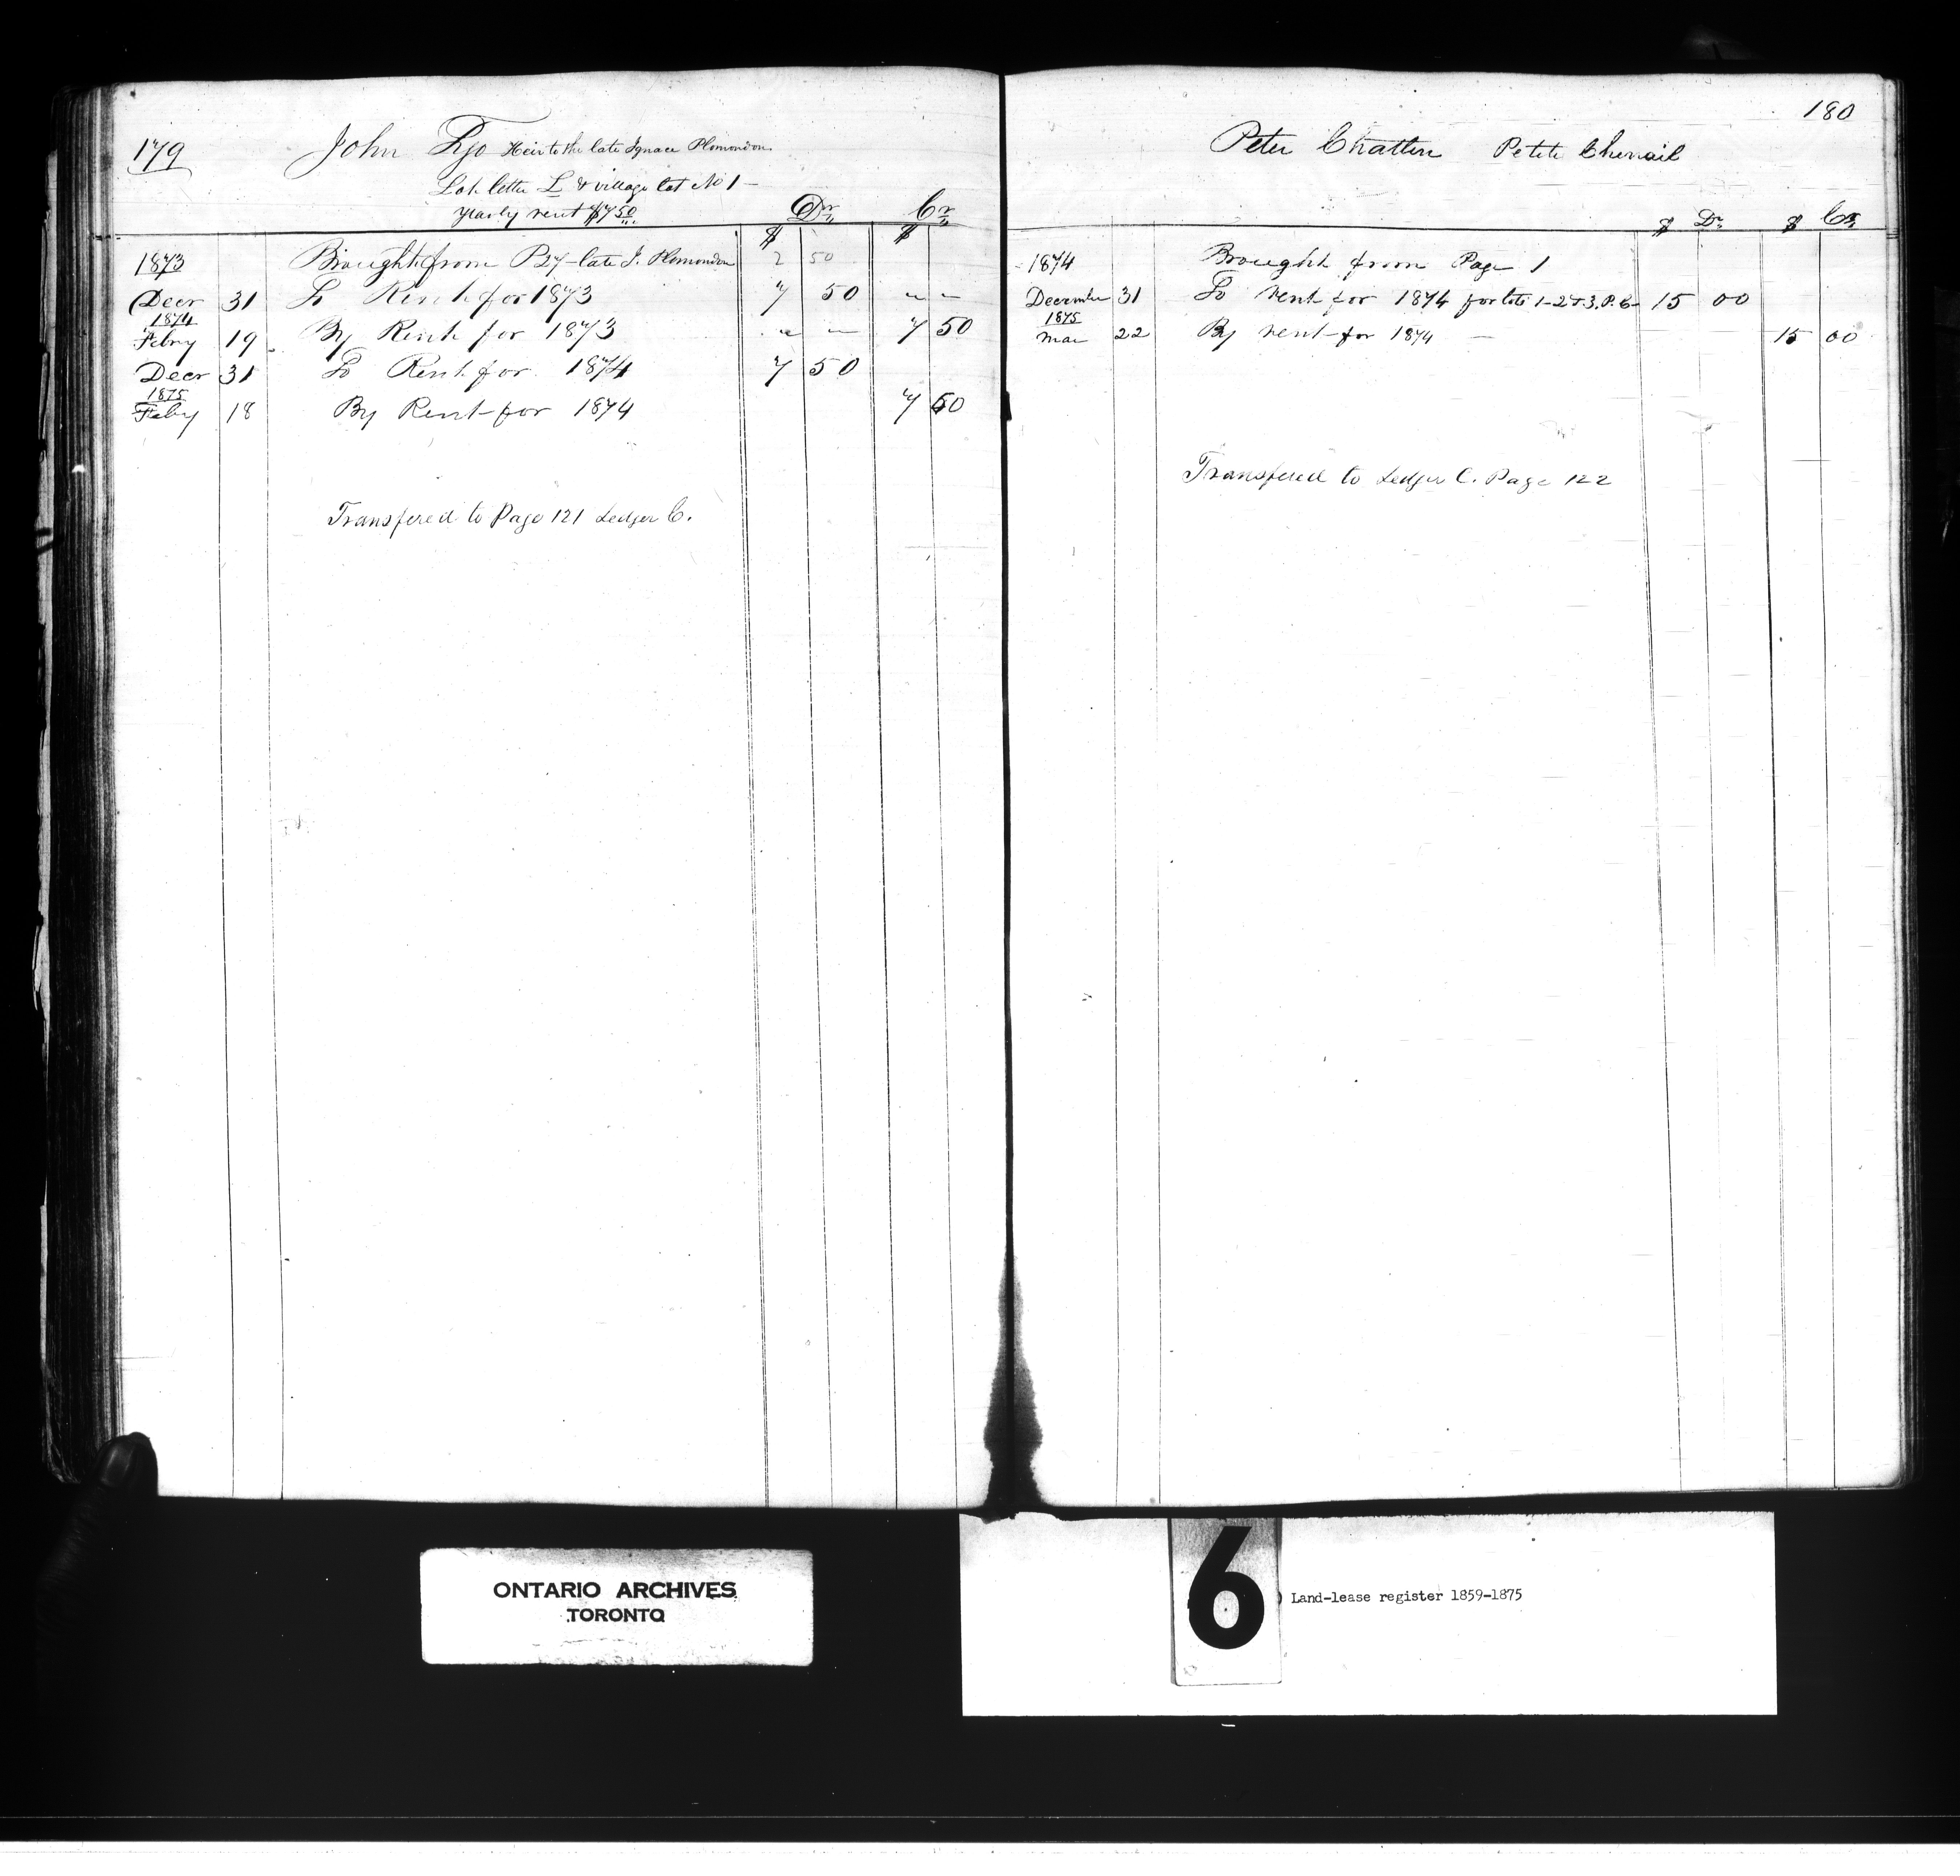 179
John Fyo Heir to the late Ignace Plomondon
Lot letter L & village lot No 1 —
Yearly rent $7 50
Dr Cr
$ $
1873 Brought from P 27 - late I. Plomondon 2 50
Decr 31 To Rent for 1873 7 50 " "
1874
Febry 19 By Rent for 1873 " — 7 50
Decr 31 To Rent for 1874 7 50
1875
Feby 18 By Rent for 1874 7 50
Transfered to Page 121 Ledger C.
180
Peter Chatten Petite Chenail
$ Dr $ Cr
1874 Brought from Page 1
December 31 To rent for 1874 for lots 1-2 & 3. P. C— 15 00
1875
Mar 22 By rent for 1874 — 15 00
Transfered to Ledger C. Page 122
ONTARIO ARCHIVES
TORONTO
6
) Land-lease register 1859-1875